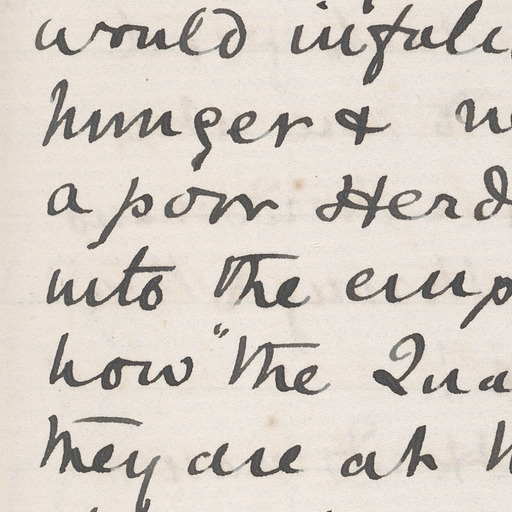 would infali
hunger &
a poor Herd
into the emp
how "the Qua
they are at